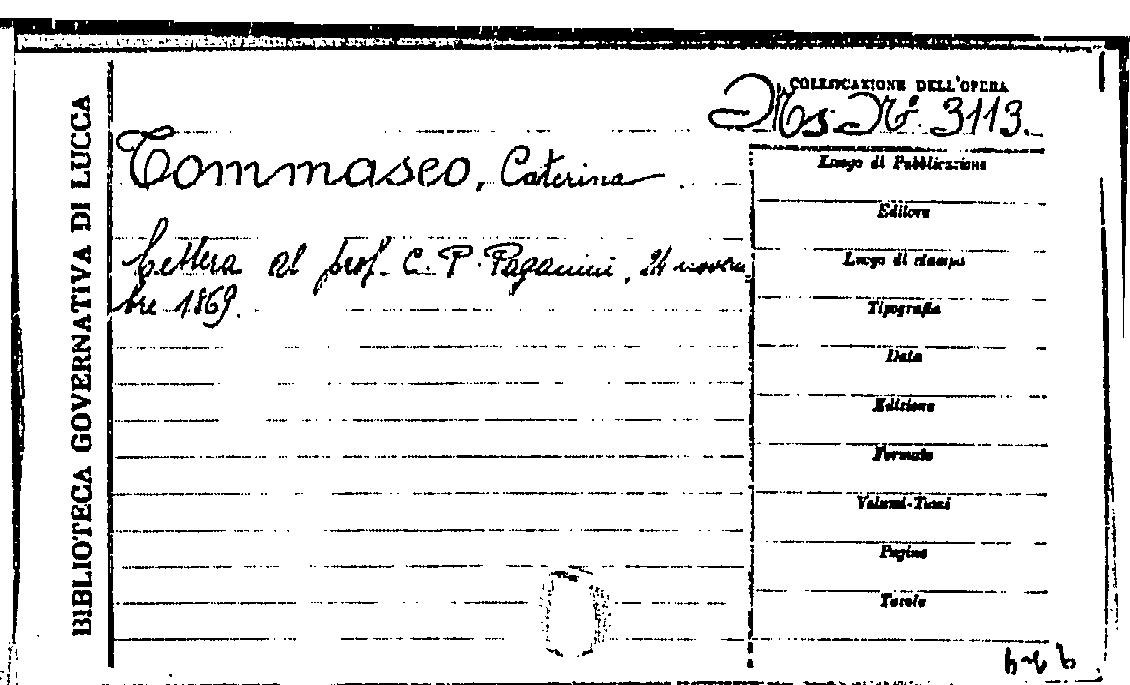 BIBLIOTECA GOVERNATIVA DI LUCCA
COLLOCAZIONE DELL'OPERA
Ms. N.° 3113.
Tommaseo, Caterina
Lettera al prof. C. P. Paganini, 24 novem
bre 1869.
Luogo di Pubblicazione
Editore
Luogo di stampa
Tipografia
Data
Edizione
Formato
Volumi-Tomi
Pagine
Tavole